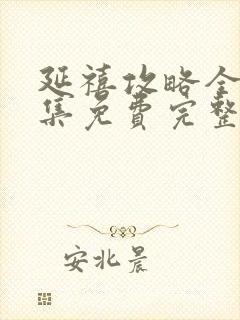 延禧攻略全
集免费完整
安北晨